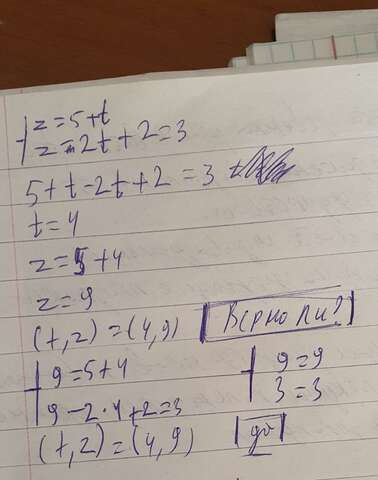 z=5+t
z-2t+2=3
5+t-2t+2=3
t=4
z=5+4
z=9
(t,z)=(4,9) Верно ли?
9=5+4 9=9
9-2·4+2=3 3=3
(t,z)=(4,9) да